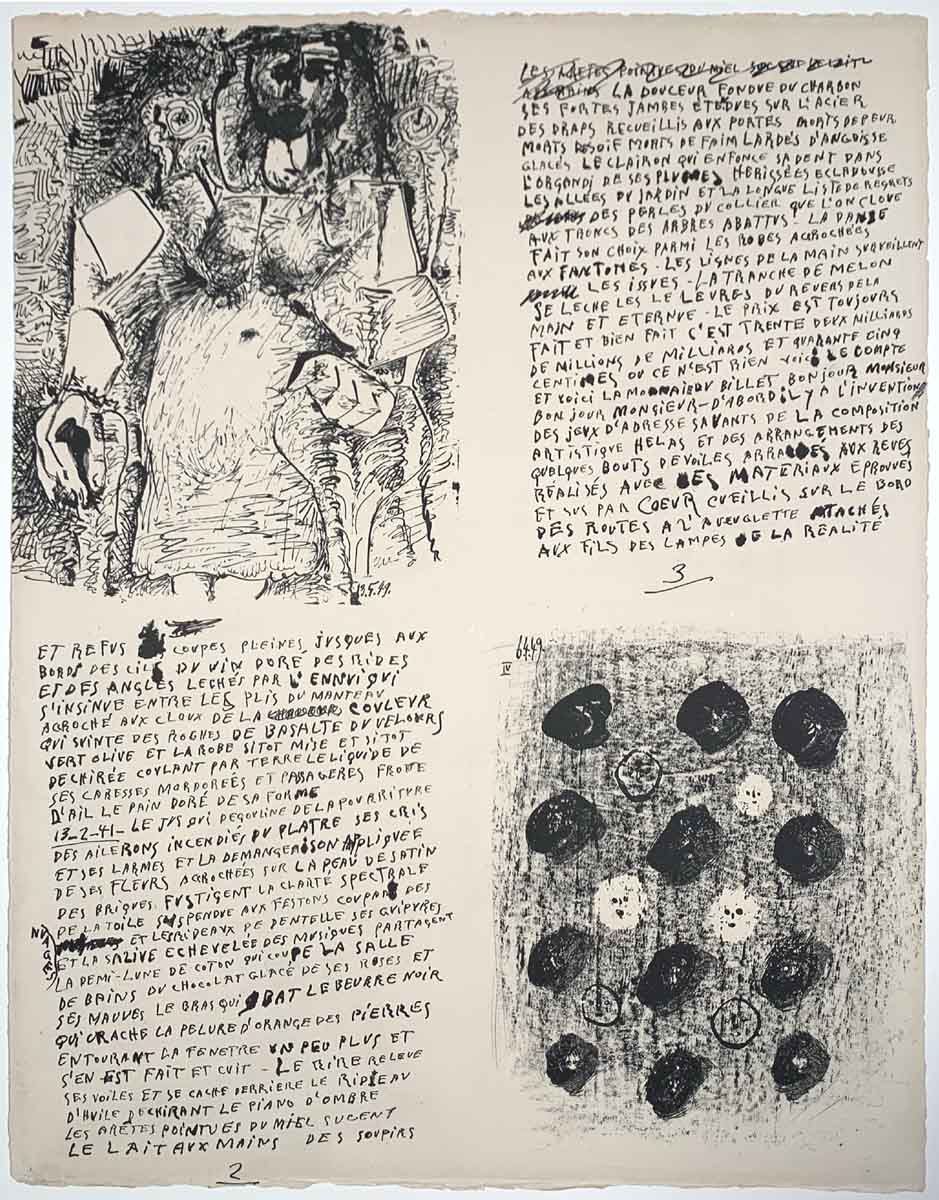 13.5.49.
ET REFUS COUPES PLEINES JUSQUES AUX
BORDS DES CILS DU VIN DORÉ DES RIDES
ET DES ANGLES LECHÉS PAR L'ENNUI QUI
S'INSINUE ENTRE LES PLIS DU MANTEAU
ACROCHÉ AUX CLOUX DE LA COULEUR
QUI SUINTE DES ROCHES DE BASALTE DU VELOURS
VERT OLIVE ET LA ROBE SITOT MISE ET SITOT
DECHIRÉE COULANT PAR TERRE LE LIQUIDE DE
SES CARESSES MORDOREÉS ET PASSAGERES FROTTE
D'AIL LE PAIN DORÉ DE SA FORME
13-2-41- LE JUS QUI DEGOULINE DE LA POURRITURE
DES AILERONS INCENDIÉS DU PLATRE SES CRIS
ET SES LARMES ET LA DEMANGEAISON APPLIQUÉE
DE SES FLEURS ACROCHÉES SUR LA PEAU DE SATIN
DES BRIQUES FUSTIGENT LA CLARTÉ SPECTRALE
DE LA TOILE SUSPENDUE AUX FESTONS COUPANT DES
NUAGES ET LES RIDEAUX DE DENTELLE SES GUIPURES
ET LA SALIVE ECHEVELÉE DES MUSIQUES PARTAGENT
LA DEMI-LUNE DE COTON QUI COUPE LA SALLE
DE BAINS DU CHOCOLAT GLACÉ DE SES ROSES ET
SES MAUVES LE BRAS QUI BAT LE BEURRE NOIR
QUI CRACHE LA PELURE D'ORANGE DES PIERRES
ENTOURANT LA FENETRE UN PEU PLUS ET
S'EN EST FAIT ET CUIT - LE RIRE RELEVE
SES VOILES ET SE CACHE DERRIERE LE RIDEAU
D'HUILE DECHIRANT LE PIANO D'OMBRE
LES ARÊTES POINTUES DU MIEL SUCENT
LE LAIT AUX MAINS DES SOUPIRS
2
LES ARETES POINTUES DU MIEL
AUX MAINS LA DOUCEUR FONDUE DU CHARBON
SES FORTES JAMBES ETENDUES SUR L'ACIER
DES DRAPS RECUEILLIS AUX PORTES MORTS DE PEUR
MORTS DE SOIF MORTS DE FAIM LARDÉS D'ANGOISSE
GLACÉS LE CLAIRON QUI ENFONCE SA DENT DANS
L'ORGANDI DE SES PLUMES HERISSÉES ECLABOUSSE
LES ALLÉES DU JARDIN ET LA LONGUE LISTE DE REGRETS
DES PERLES DU COLLIER QUE L'ON CLOUE
AUX TRONCS DES ARBRES ABATTUS. LA DANSE
FAIT SON CHOIX PARMI LES ROBES ACROCHÉES
AUX FANTOMES - LES LIGNES DE LA MAIN SURVEILLENT
LES ISSUES - LA TRANCHE DE MELON
SE LECHE LES LE LÈVRES DU REVERS DE LA
MAIN ET ETERNUE - LE PRIX EST TOUJOURS
FAIT ET BIEN FAIT C'EST TRENTE DEUX MILLIARDS
DE MILLIONS DE MILLIARDS ET QUARANTE CINQ
CENTIMES OU CE N'EST RIEN VOICI LE COMPTE
ET VOICI LA MONNAIE DU BILLET BONJOUR MONSIEUR
BONJOUR MONSIEUR - D'ABORD IL Y A L'INVENTION
DES JEUX D'ADRESSE SAVANTS DE LA COMPOSITION
ARTISTIQUE HELAS ET DES ARRANGEMENTS DES
QUELQUES BOUTS DE VOILES ARRACHÉS AUX REVES
RÉALISÉS AVEC DES MATERIAUX ÉPROUVÉS
ET SUS PAR COEUR CUEILLIS SUR LE BORD
DES ROUTES A L'AVEUGLETTE ATACHÉS
AUX FILS DES LAMPES DE LA RÉALITÉ
3
6.4.49
IV